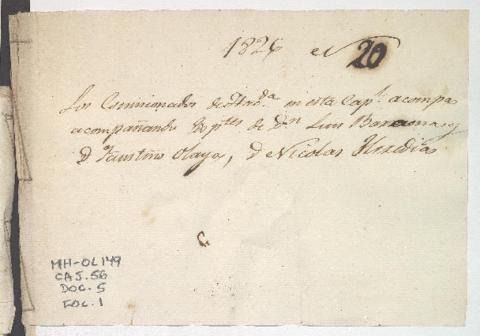 1826 el 20
Los Comisionados de Had.da en esta Cap.l acompa
acompañando de D.n Luis Baraona y
D. Faustino Olaya, D. Nicolas Heredia
C.
MH-OL 149
CAJ. 56
DOC. 5
FOL. 1